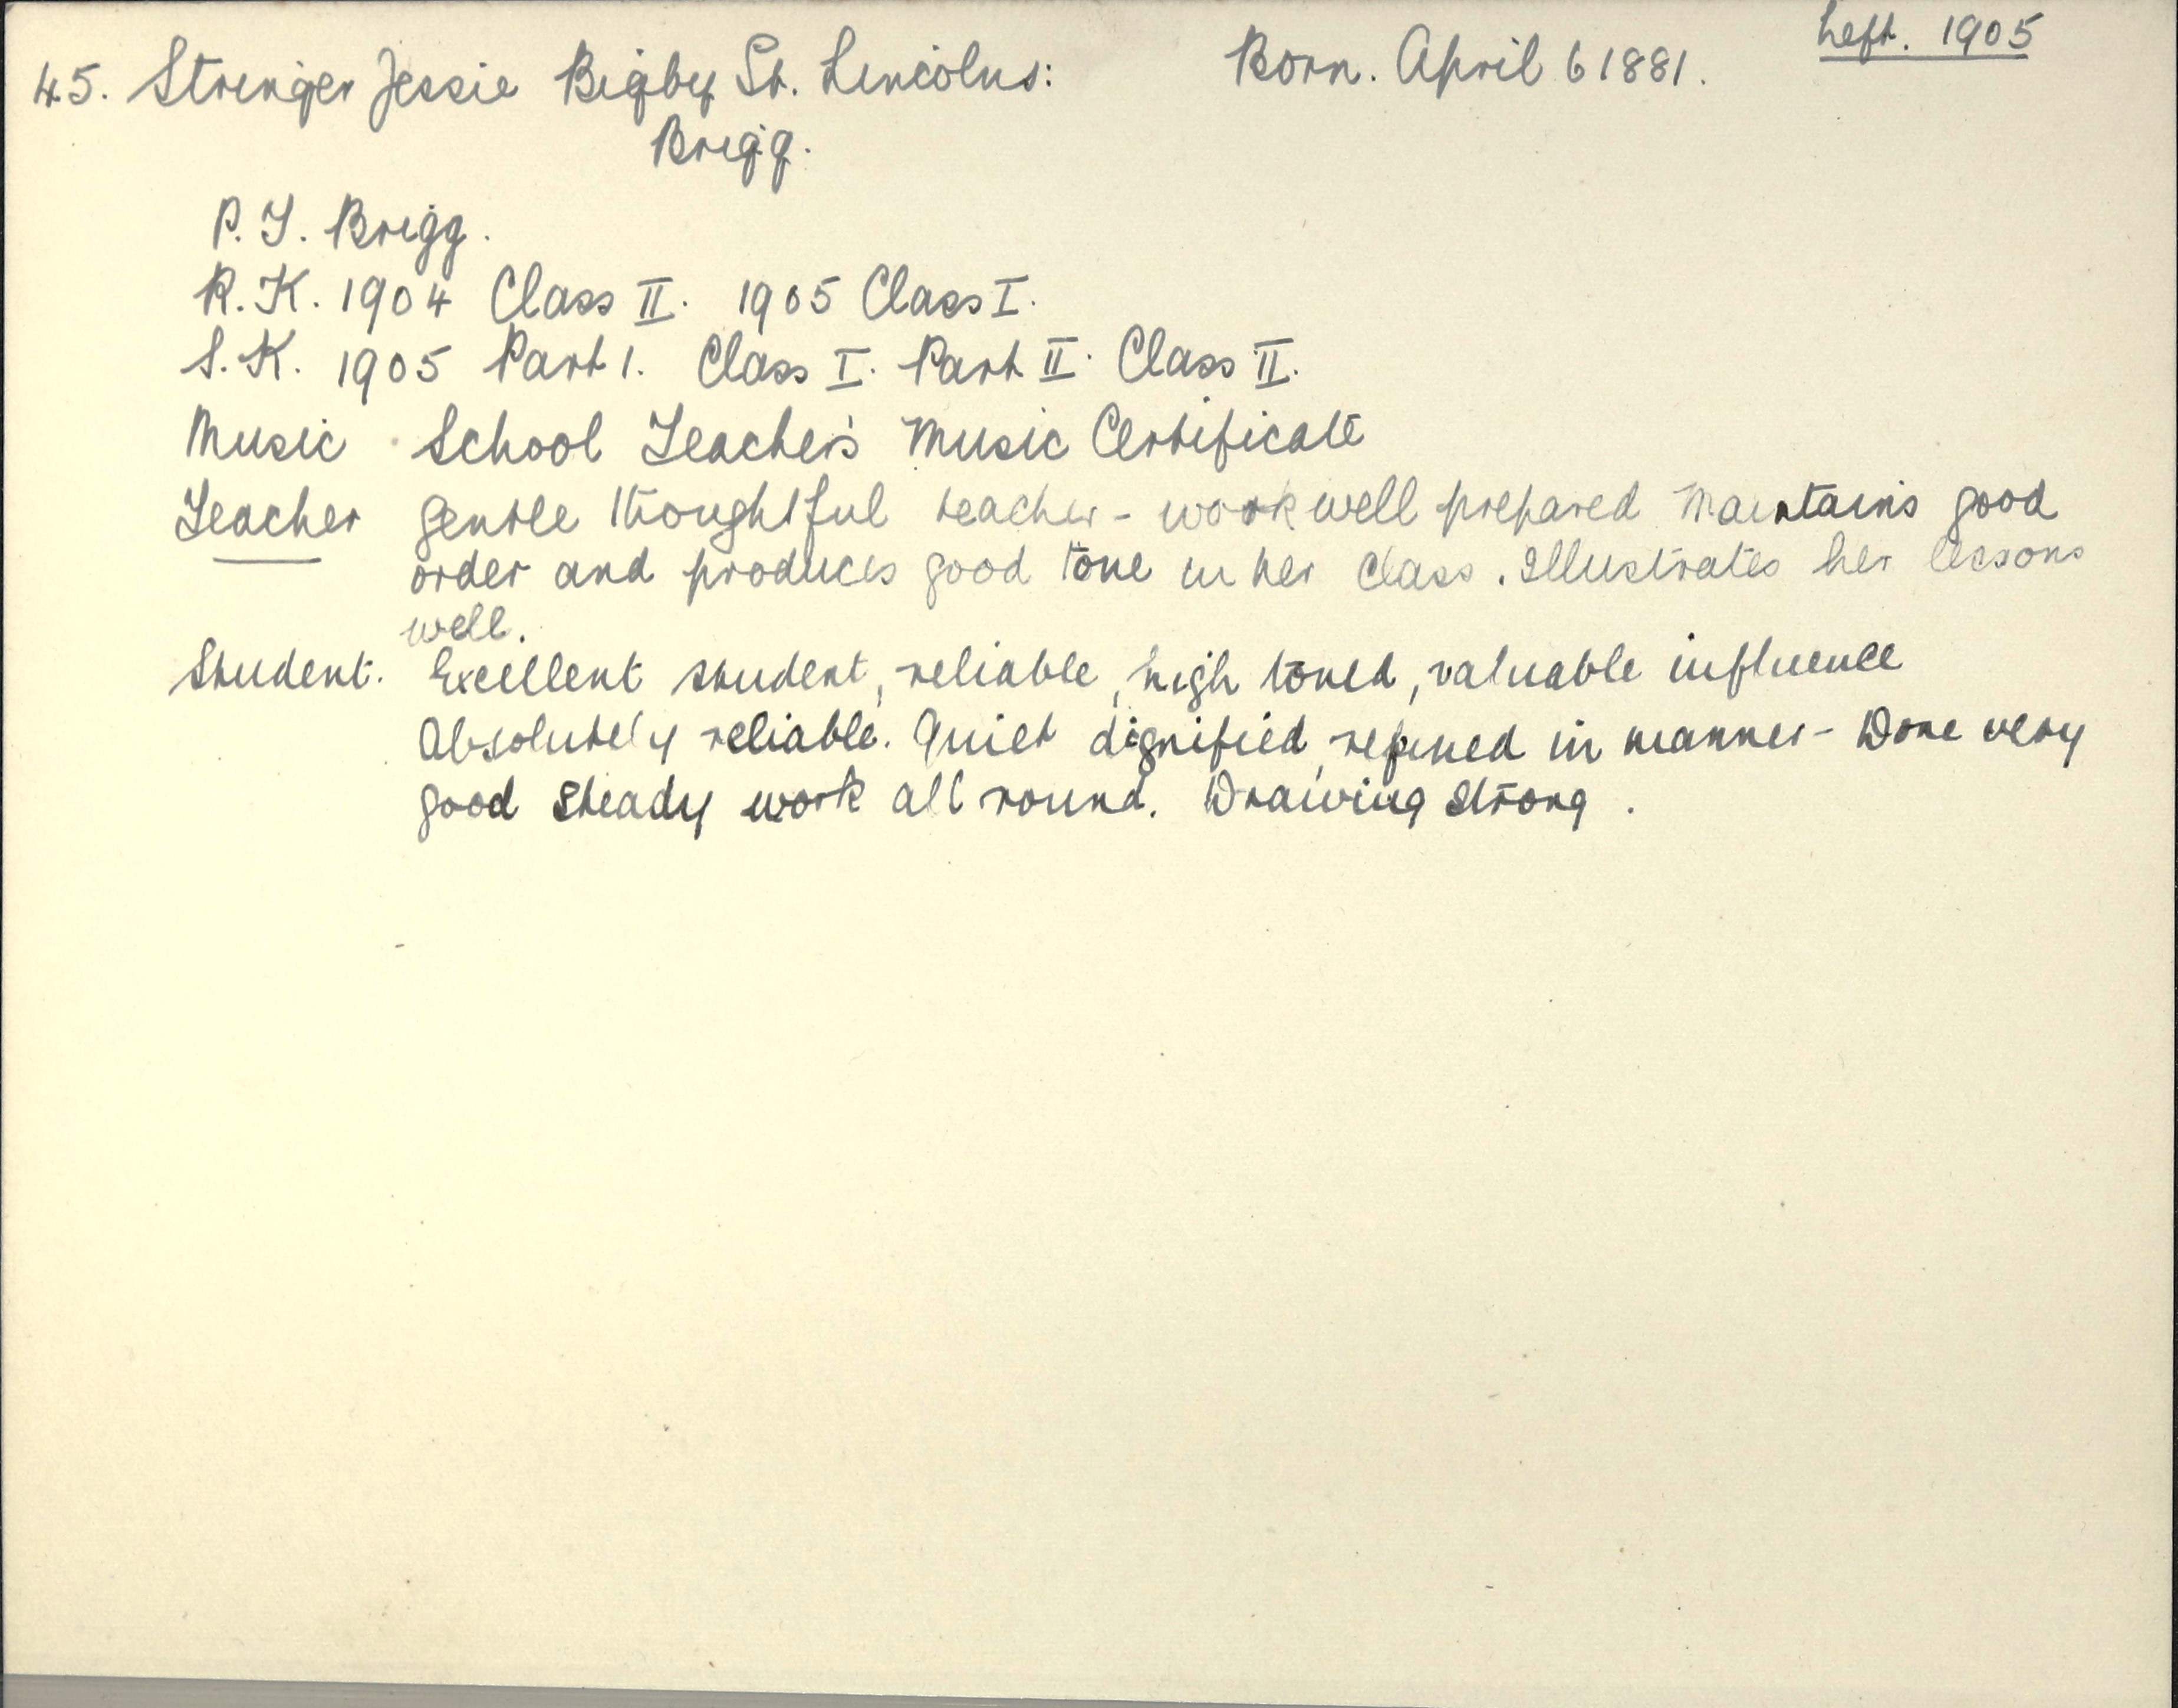 45. Stringer Jessie Bigby St. Lincolns: Born. April 6 1881. Left. 1905
Brigg.
P.T. Brigg.
R.K. 1904 Class II. 1905 Class I.
S.K. 1905 Part 1. Class I. Part II. Class II.
Music School Teacher's Music Certificate
Teacher Gentle thoughtful teacher - work well prepared Maintains good
order and produces good tone in her class. Illustrates her lessons
well.
Student. Excellent student, reliable, high toned, valuable influence
Absolutely reliable. Quiet dignified, refined in manner - Done very
good steady work all round. Drawing strong.